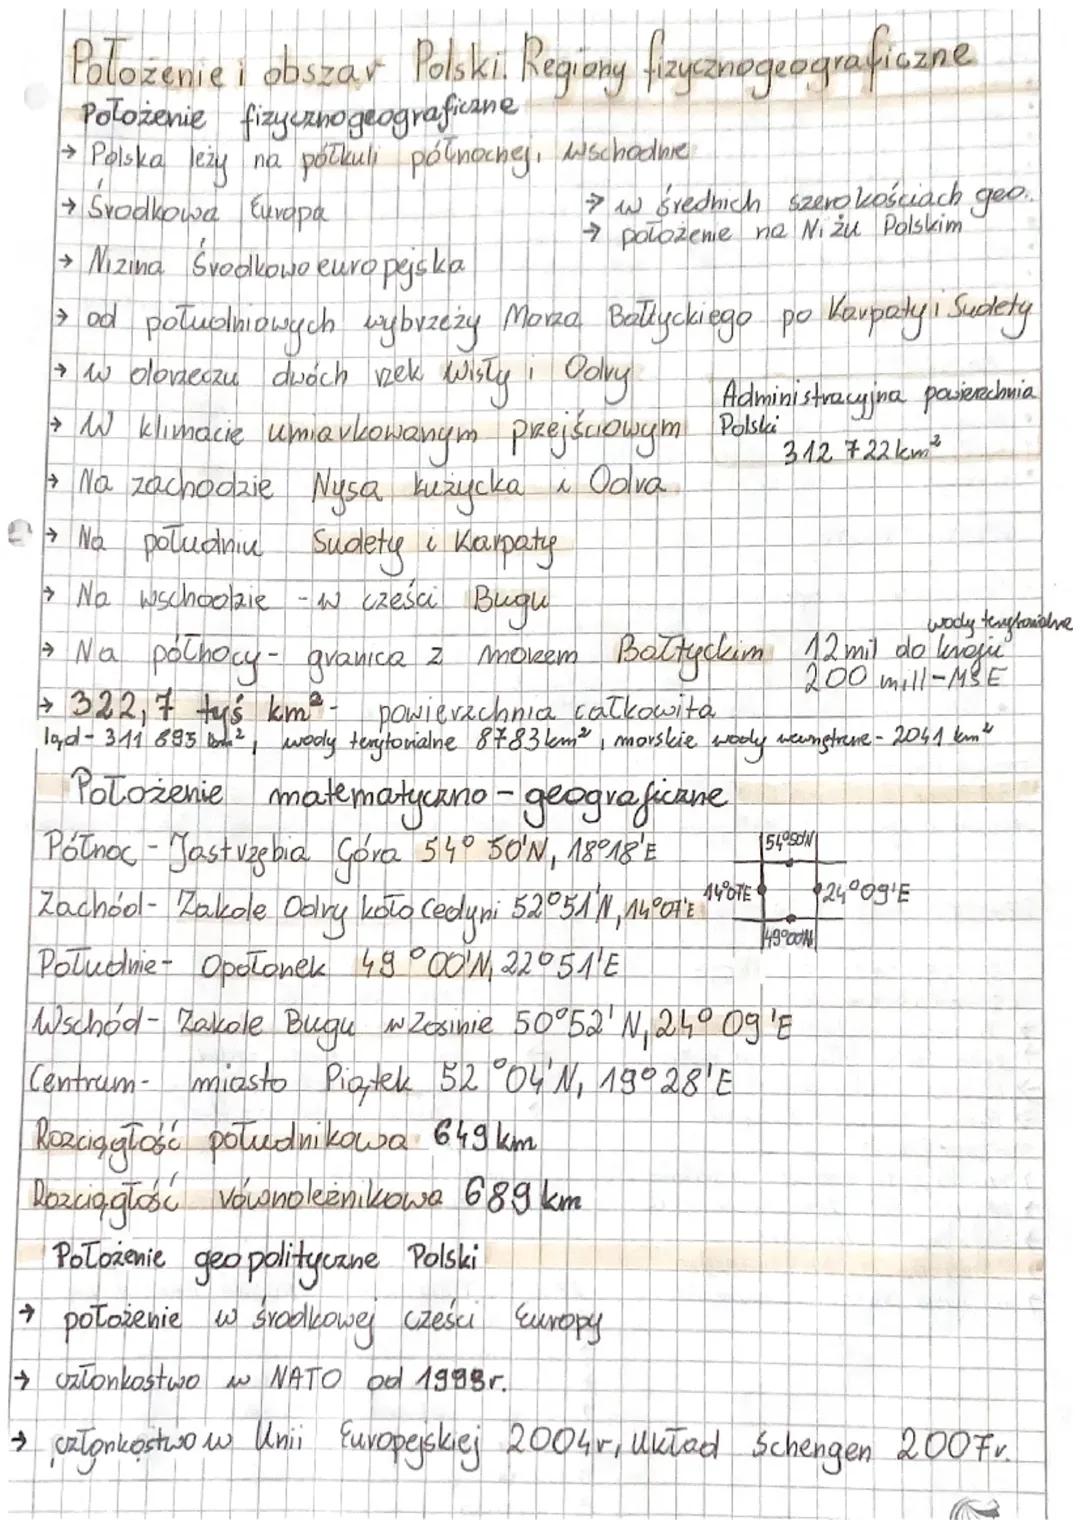 Położenie i obszar Polski. Regiony fizycznogeograficzne
Położenie fizycznogeograficzne
→ Polska leży na półkuli północnej, wschodnie
→ Środkowa Europa
→ w średnich szerokościach geo.
→ położenie na Niżu Polskim
→ Nizina Środkowoeuropejska
→ od południowych wybrzeży Morza Bałtyckiego po Karpaty i Sudety
→ w dorzeczu dwóch rzek Wisły i Odry
Administracyjna powierzchnia
Polski
312 722 km²
→ W klimacie umiarkowanym przejściowym
→ Na zachodzie Nysa Łużycka i Odra
→ Na południu Sudety i Karpaty
→ Na wschodzie - w części Bugu
→ Na północy - granica z morzem Bałtyckim
wody terytorialne
12 mil do kraju
200 mill - MSE
→ 322,7 tyś km² - powierzchnia całkowita
ląd - 311 895 km², wody terytorialne 8783 km², morskie wody wewnętrzne - 2041 km²
Położenie matematyczno - geograficzne
Północ - Jastrzębia Góra 54° 50'N, 18°18'E
Zachód - Zakole Odry koło Cedyni 52°51'N, 14°07'E
Południe - Opołonek 49°00'N, 22°51'E
54°50'N
14°07'E
24°09'E
49°00'N
Wschód - Zakole Bugu w Zosinie 50°52'N, 24°09'E
Centrum - miasto Piątek 52°04'N, 19°28'E
Rozciągłość południkowa 649 km
Rozciągłość równoleżnikowa 689 km
Położenie geopolityczne Polski
→ położenie w środkowej części Europy
→ członkostwo w NATO od 1999r.
→ członkostwo w Unii Europejskiej 2004r, Układ Schengen 2007r.